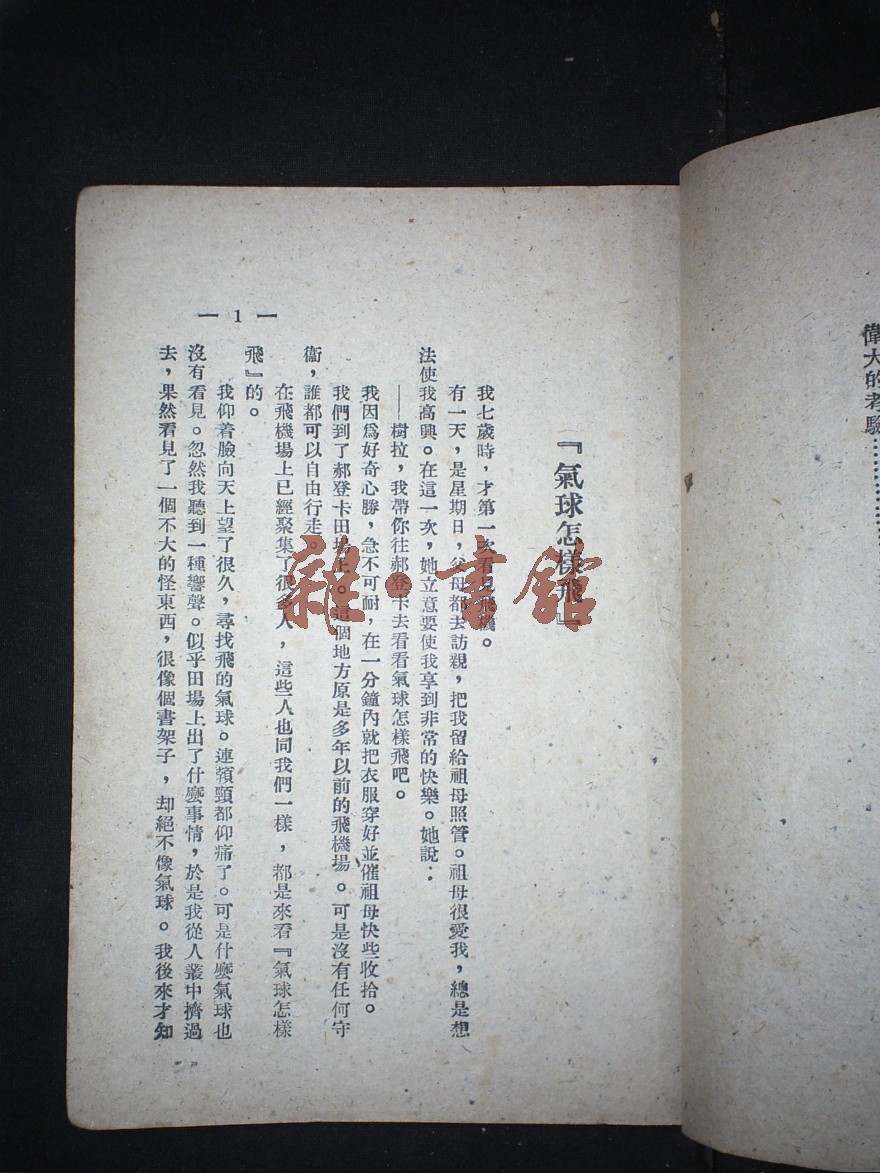 偉大的考驗…………
『氣球怎樣飛』
我七歲時，才第一次看見飛機。
有一天，是星期日，父母都去訪親，把我留給祖母照管。祖母很愛我，總是想
法使我高興。在這一次，她立意要使我享到非常的快樂。她說：
——樹拉，我帶你往郝登卡去看看氣球怎樣飛吧。
我因爲好奇心勝，急不可耐，在一分鐘內就把衣服穿好並催祖母快些收拾。
我們到了郝登卡田場上。這個地方原是多年以前的飛機場。可是沒有任何守
衞，誰都可以自由行走。
在飛機場上已經聚集了很多人，這些人也同我們一樣，都是來看『氣球怎樣
飛』的。
我仰着臉向天上望了很久，尋找飛的氣球。連頸都仰痛了。可是什麼氣球也
沒有看見。忽然我聽到一種響聲。似乎田場上出了什麼事情，於是我從人叢中擠過
去，果然看見了一個不大的怪東西，很像個書架子，却絕不像氣球。我後來才知
— 1 —
雜·書館